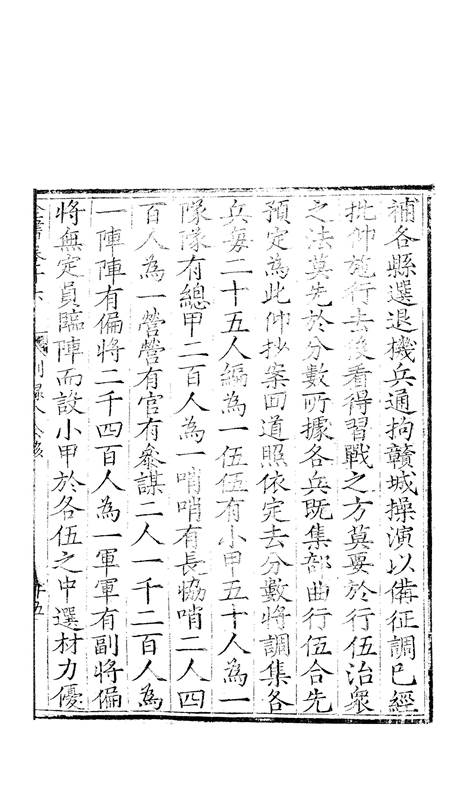 補各縣選退機兵通拘贛城操演以備征調已經
批仰施行去後看得習戰之方莫要於行伍治衆
之法莫先於分數所據各兵既集部曲行伍合先
預定為此仰抄案回道照依定去分數將調集各
兵每二十五人編為一伍伍有小甲五十人為一
隊隊有總甲二百人為一哨哨有長恊哨二人四
百人為一營營有官有叅謀二人一千二百人為
一陣陣有偏將二千四百人為一軍軍有副將偏
將無定員臨陣而設小甲於各伍之中選材力優